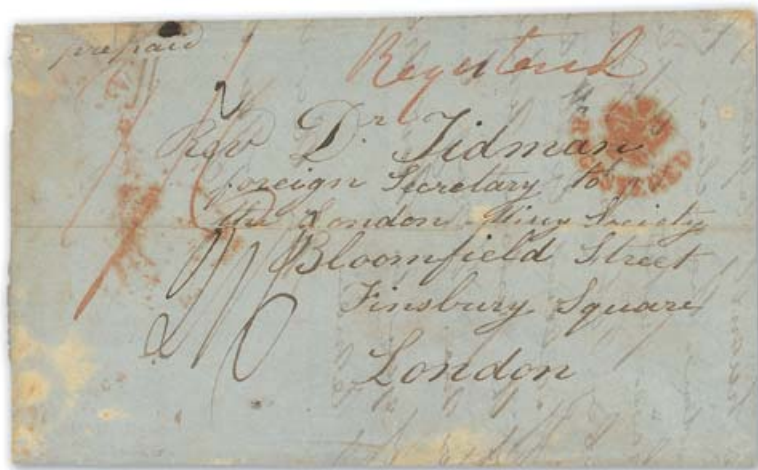 prepaid
Registered
REGISTERED
2
Rev Dr. Tidman
foreign Secretary to
the London Missy Society
Bloomfield Street
Finsbury Square
London